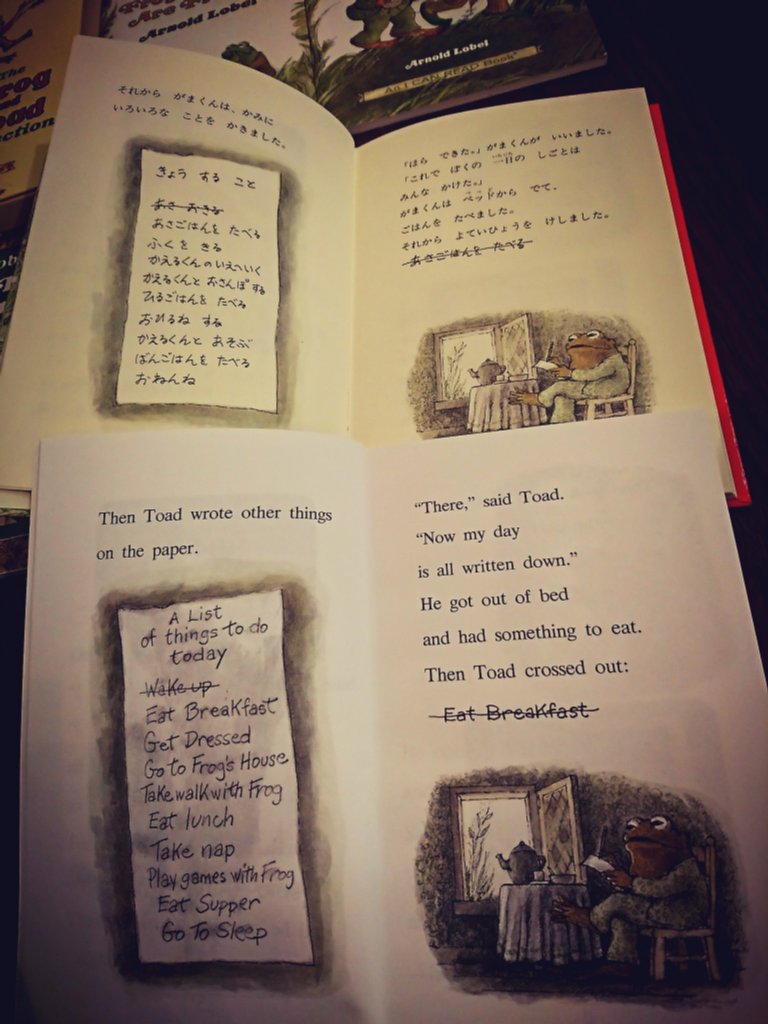 Arnold Lobel
Arnold Lobel
An I CAN READ Book
The
Frog
and
Toad
それから がまくんは、かみに
いろいろな ことを かきました。
きょう する こと
あさ おきる
あさごはんを たべる
ふくを きる
かえるくんのいえへいく
かえるくんと おさんぽする
ひるごはんを たべる
おひるね する
かえるくんと あそぶ
ばんごはんを たべる
おねんね
「ほら できた。」がまくんが いいました。
「これで ぼくの 一日の しごとは
みんな かけた。」
がまくんは ベッドから でて、
ごはんを たべました。
それから よていひょうを けしました。
あさごはんを たべる
Then Toad wrote other things
on the paper.
A List
of things to do
today
Wake up
Eat Breakfast
Get Dressed
Go to Frog's House
Take walk with Frog
Eat lunch
Take nap
Play games with Frog
Eat Supper
Go To Sleep
“There,” said Toad.
“Now my day
is all written down.”
He got out of bed
and had something to eat.
Then Toad crossed out:
Eat Breakfast